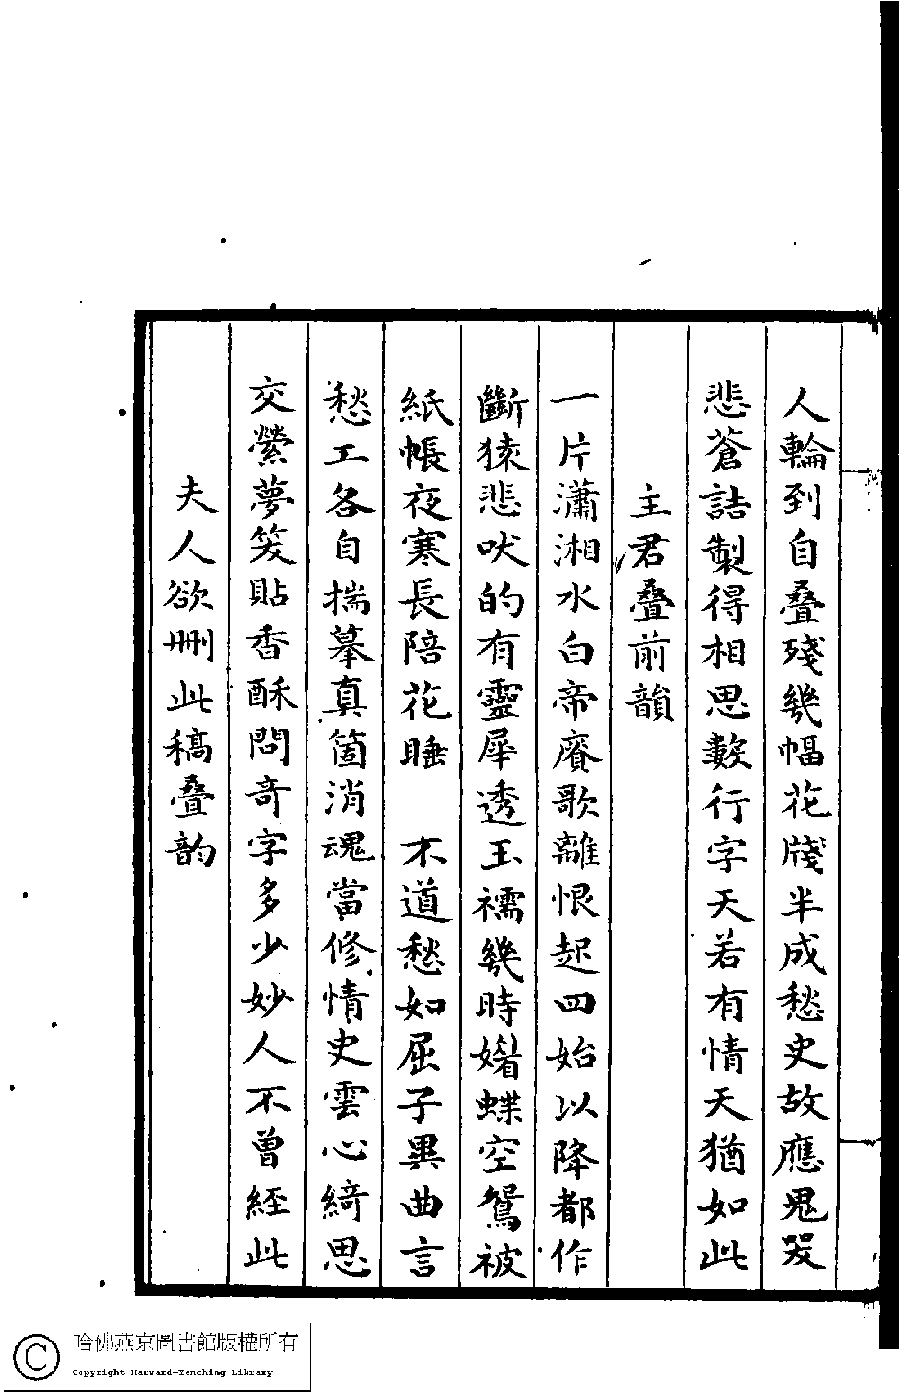 人輪到自叠殘幾幅花牋半成愁史故應鬼哭
悲蒼詰製得相思數行字天若有情天猶如此
主君叠前韻
一片瀟湘水白帝賡歌離恨起四始以降都作
斷猿悲吠的有靈犀透玉襦幾時㛼蝶空鴛被
紙帳夜寒長陪花睡　不道愁如屈子異曲言
愁工各自揣摹真箇消魂當修情史雲心綺思
交縈夢笑貼香酥問奇字多少妙人不曾經此
夫人欲刪此稿叠韵
哈佛燕京圖書館版權所有
Copyright Harvard-Yenching Library